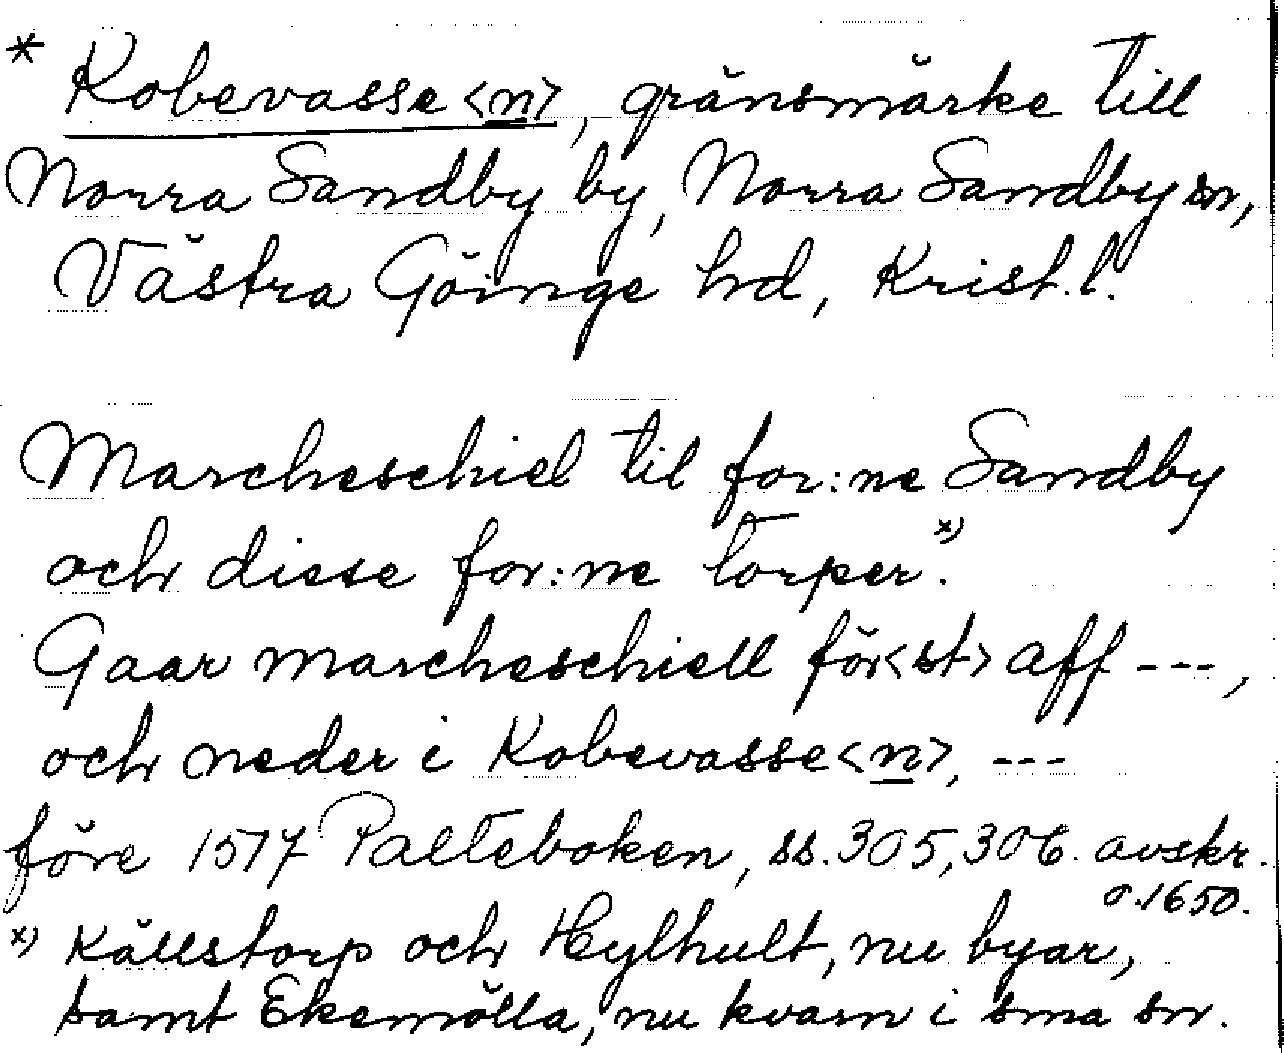 * Kobevasse<n>, gränsmärke till
Norra Sandby by, Norra Sandby sn,
Västra Göinge hd, Krist. l.
Marcheschiel til for:ne Sandby
och disse for:ne torper.ˣ⁾
Gaar marcheschiell för<st> aff ---,
och neder i Kobevasse<n>, ---
före 1517 Palteboken, ss. 305, 306. avskr.
o. 1650.
ˣ⁾ Källstorp och Hylhult, nu byar,
samt Ekemölla, nu kvarn i sma sn.